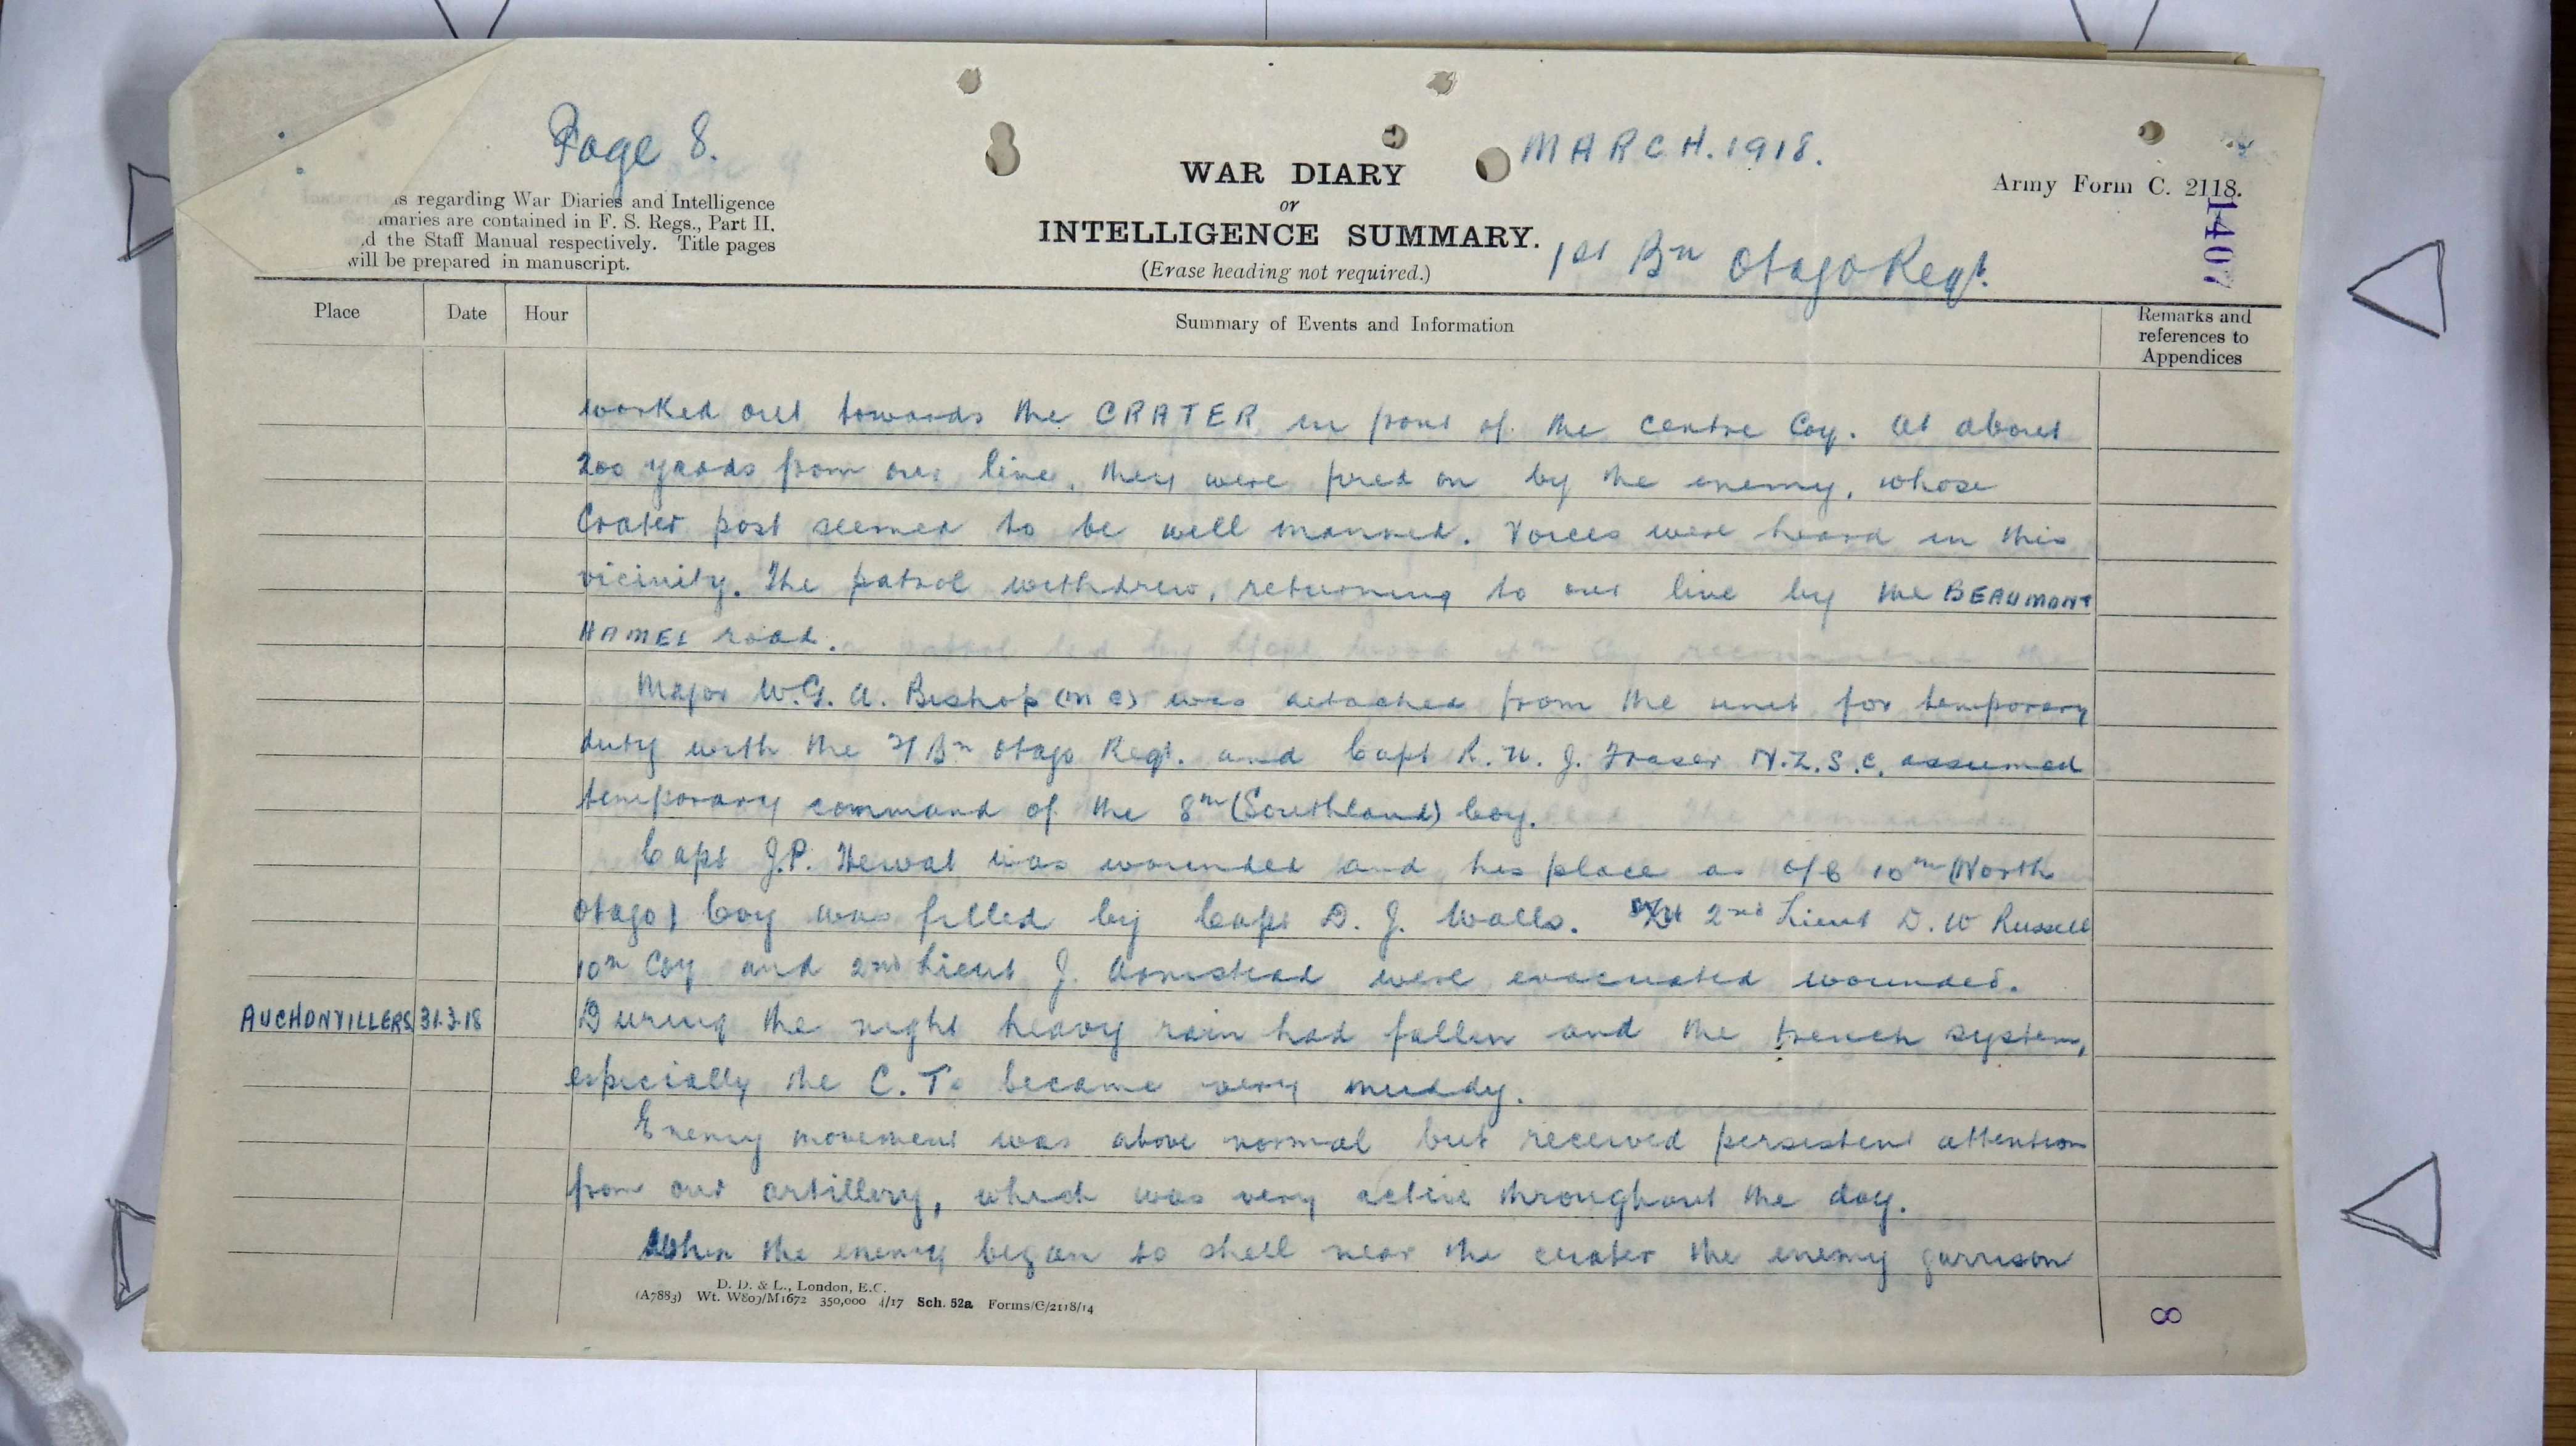 Page 8.
MARCH. 1918.
WAR DIARY
or
INTELLIGENCE SUMMARY.
(Erase heading not required.)
1st Bn Otago Regt.
Army Form C. 2118.
1407
s regarding War Diaries and Intelligence
maries are contained in F. S. Regs., Part II.
d the Staff Manual respectively. Title pages
will be prepared in manuscript.
Place Date Hour Summary of Events and Information Remarks and references to Appendices
worked out towards the CRATER in front of the centre Coy. At about
200 yards from our line, they were fired on by the enemy, whose
Crater post seemed to be well manned. Voices were heard in this
vicinity. The patrol withdrew, returning to our line by the BEAUMONT
HAMEL road.
Major W. G. A. Bishop (M C) was detached from the unit for temporary
duty with the Bn Otago Regt. and Capt R. N. J. Fraser N.Z.S.C. assumed
temporary command of the 8th (Southland) Coy.
Capt J.P. Hewat was wounded and his place as O/C 10th (North
Otago) Coy was filled by Capt D. J. Walls. 2nd Lieut D. W Russell
10th Coy and 2nd Lieut J. Armstead were evacuated wounded.
AUCHONVILLERS 31.3.18 During the night heavy rain had fallen and the trench system,
especially the C. Ts became very muddy.
Enemy movement was above normal but received persistent attention
from our artillery, which was very active throughout the day.
When the enemy began to shell near the crater the enemy garrison
D. D. & L., London, E.C.
(A7883) Wt. W809/M1672 350,000 4/17 Sch. 52a Forms/C/2118/14
8